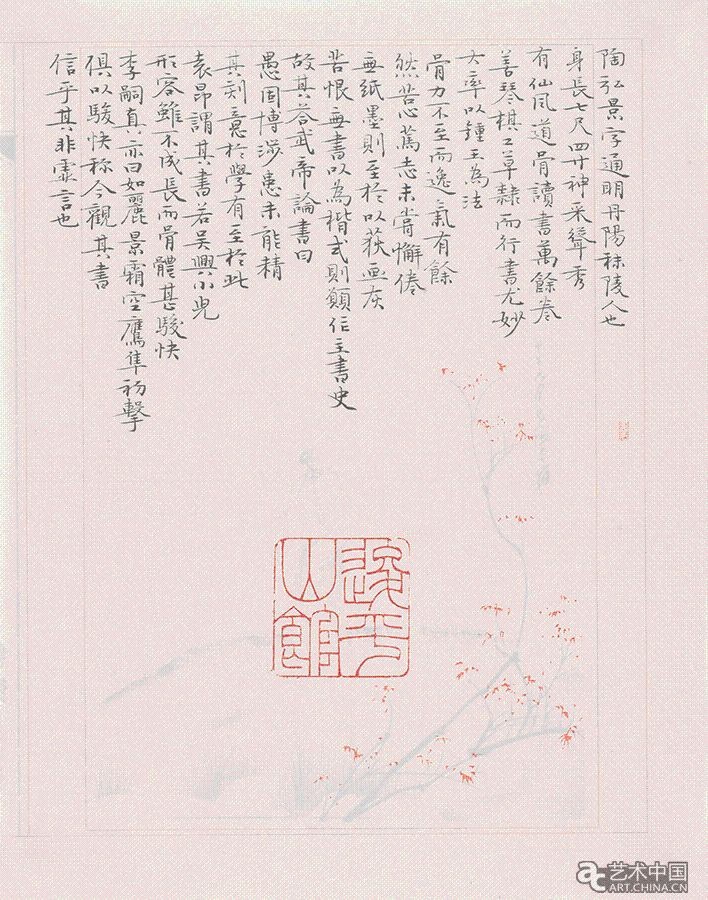 陶弘景字通明丹陽秣陵人也
身長七尺四寸神采聳秀
有仙風道骨讀書萬餘卷
善琴棋工草隸而行書尤妙
大率以鍾王為法
骨力不至而逸氣有餘
然苦心篤志未嘗懈倦
無紙墨則至於以荻画灰
苦恨無書以為楷式則願作主書史
故其答武帝論書曰
愚固博涉患未能精
其刻意於學有至於此
袁昂謂其書若吳興小兒
形容雖不成長而骨體甚駿快
李嗣真亦曰如麗景霜空鷹隼初擊
俱以駿快称今觀其書
信乎其非虛言也
逸平
山館
艺术中国
ART.CHINA.CN